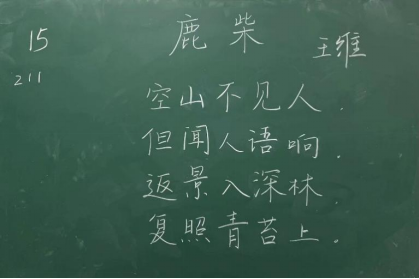 15
211
鹿柴 王维
空山不见人.
但闻人语响.
返景入深林
复照青苔上。